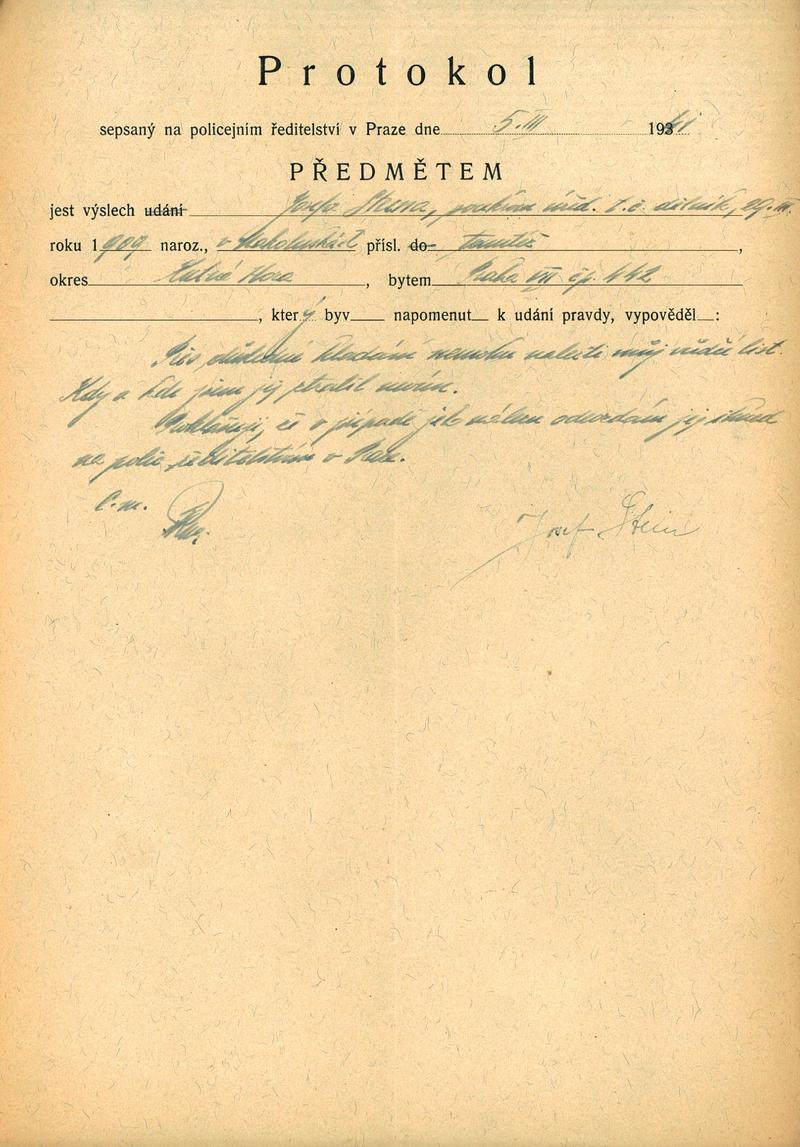 Protokol
sepsaný na policejním ředitelství v Praze dne 5. III 1941
PŘEDMĚTEM
jest výslech udání Josefa Steina, soukrom. úřed. t. č. dělník, 29. III.
roku 1909 naroz., v přísl. do tamtéž,
okres Kutná Hora, bytem Praha VII čp. 442
, který byv napomenut k údání pravdy, vypověděl :
Přes důkladné hledání nemohu nalézti můj list.
Kdy a kde jsem jej ztratil nevím.
Prohlašuji, že v případě jeho odevzdám jej ihned
na polic. ředitelstvím v Praze.
Josef Stein